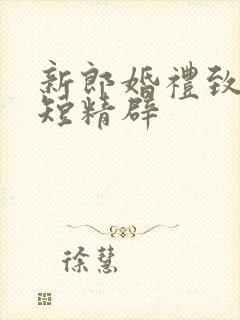 新郎婚禮致
短精辟
徐慧